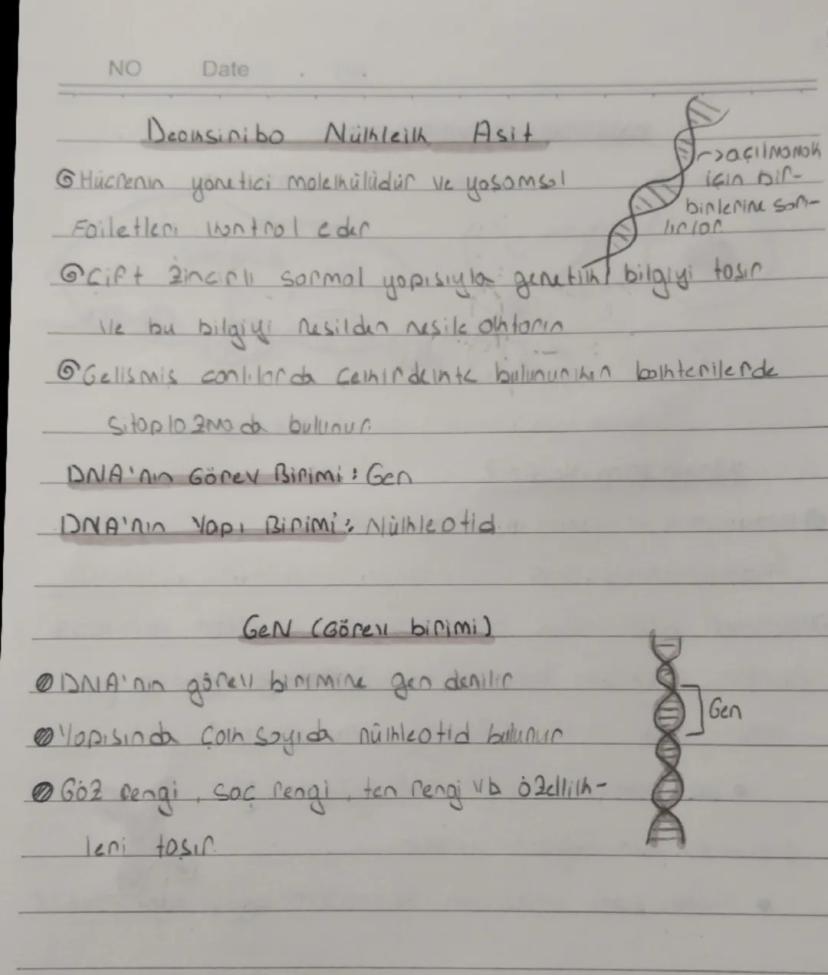 NO Date
Deoksiribo Nükleik Asit
Hücrenin yönetici molekülüdür ve yaşamsal
Faaliyetleri kontrol eder
→açılmamak
için bir-
birlerine sarı-
lırlar
Çift zincirli sarmal yapısıyla genetik bilgiyi taşır
ve bu bilgiyi nesilden nesile aktarır
Gelişmiş canlılarda çekirdekte bulunurken bakterilerde
Sitoplazmada bulunur.
DNA'nın Görev Birimi: Gen
DNA'nın Yapı Birimi: Nükleotid
GeN (Görev birimi)
DNA'nın görev birimine gen denilir
Yapısında çok sayıda nükleotid bulunur
Gen
Göz rengi, saç rengi, ten rengi vb özellik-
leri taşır